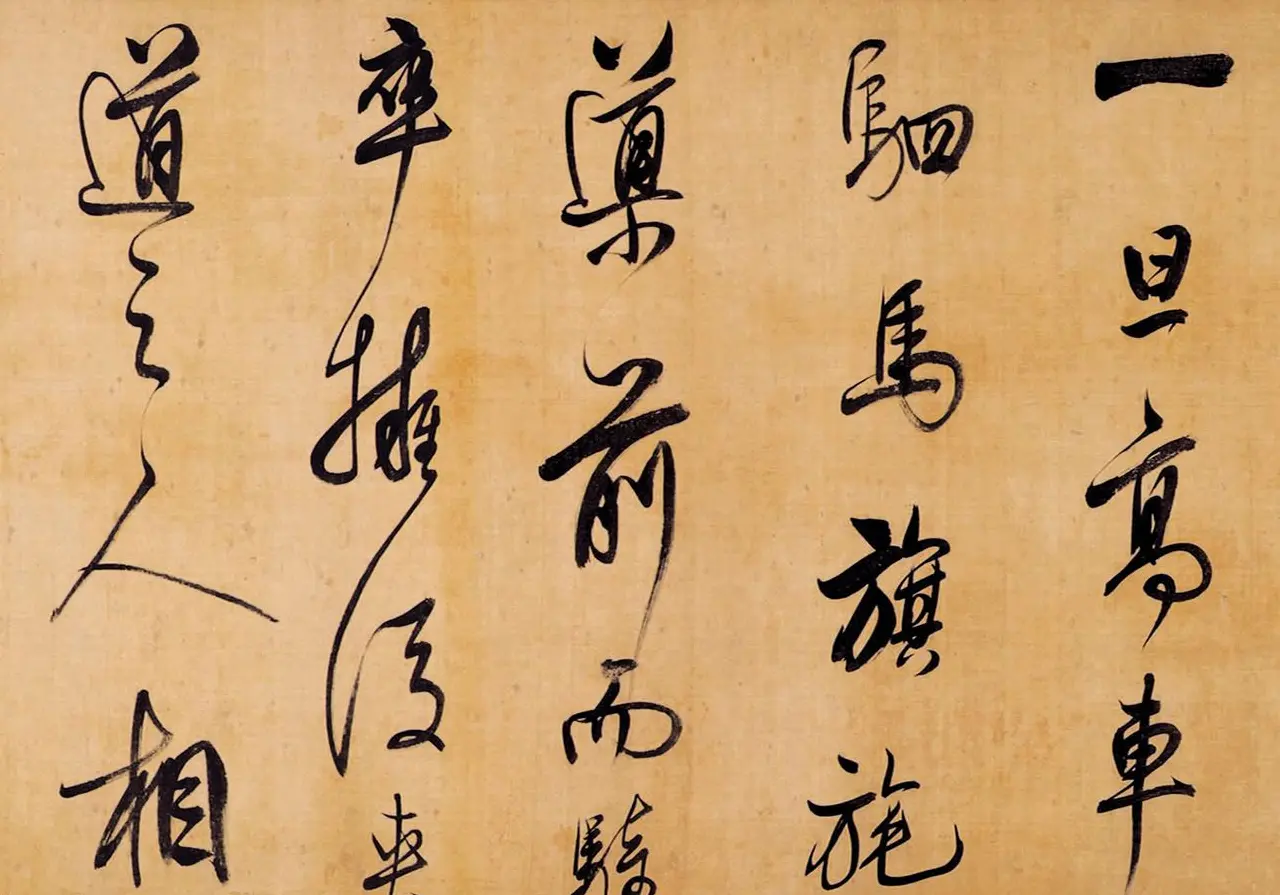 一旦高車
駟馬旗旄
導前而騎
卒擁後夾
道之人相